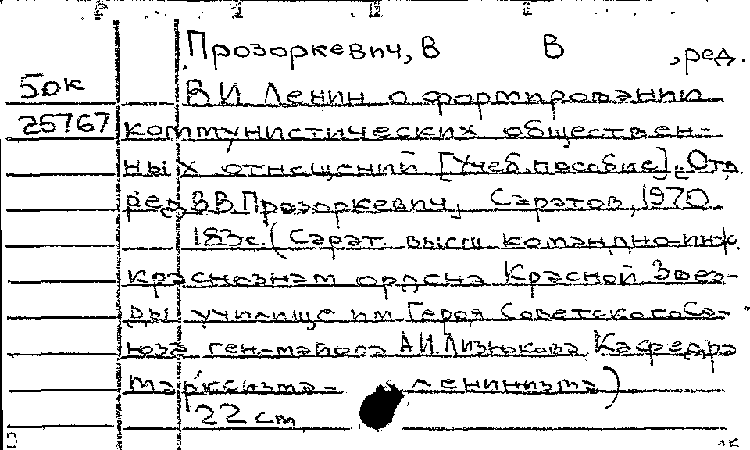 Прозоркевич, В В , ред.
50к В.И. Ленин о формировании
25767 коммунистических обществен-
ных отношений [Учеб. пособие]. Отв
ред В.В. Прозоркевич, Саратов, 1970
183с. (Сарат. высш командно-инж
краснознам ордена Красной Звез-
ды училище им Героя Советского Со-
юза ген-майора А.И. Лизюкова Кафедра
марксизма- ленинизма)
22 cm